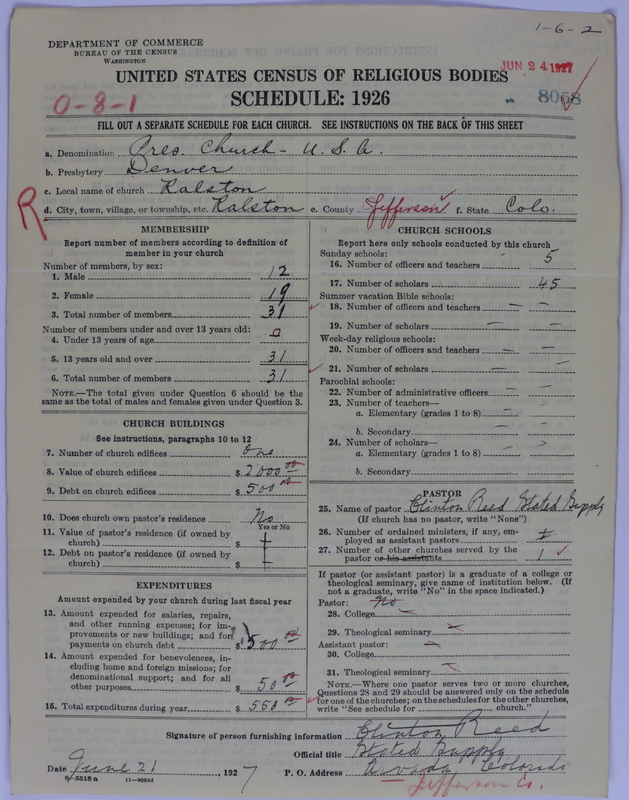 1-6-2
DEPARTMENT OF COMMERCE
BUREAU OF THE CENSUS
WASHINGTON
JUN 24 1927
UNITED STATES CENSUS OF RELIGIOUS BODIES
O-8-1
SCHEDULE: 1926
8058
FILL OUT A SEPARATE SCHEDULE FOR EACH CHURCH. SEE INSTRUCTIONS ON THE BACK OF THIS SHEET
a. Denomination Pres. Church - U.S.A.
b. Presbytery Denver
c. Local name of church Ralston
R d. City, town, village, or township, etc. Ralston e. County Jefferson f. State Colo.
MEMBERSHIP
Report number of members according to definition of
member in your church
Number of members, by sex:
1. Male 12
2. Female 19
3. Total number of members 31
Number of members under and over 13 years old:
4. Under 13 years of age 0
5. 13 years old and over 31
6. Total number of members 31
NOTE.—The total given under Question 6 should be
same as the total of males and females given under Question 3.
CHURCH BUILDINGS
See instructions, paragraphs 10 to 12
7. Number of church edifices one
8. Value of church edifices $ 2000 00
9. Debt on church edifices $ 500 00
10. Does church own pastor's residence No
Yes or No
11. Value of pastor's residence (if owned by
church) $
12. Debt on pastor's residence (if owned by
church) $
EXPENDITURES
Amount expended by your church during last fiscal year
13. Amount expended for salaries, repairs,
and other running expenses; for im-
provements or new buildings; and for
payments on church debt $ 500 00
14. Amount expended for benevolences, in-
cluding home and foreign missions; for
denominational support; and for all
other purposes $ 50 00
15. Total expenditures during year $ 550 00
CHURCH SCHOOLS
Report here only schools conducted by this church
Sunday schools:
16. Number of officers and teachers 5
17. Number of scholars 45
Summer vacation Bible schools:
18. Number of officers and teachers —
19. Number of scholars —
Week-day religious schools:
20. Number of officers and teachers —
21. Number of scholars —
Parochial schools:
22. Number of administrative officers —
23. Number of teachers—
a. Elementary (grades 1 to 8) —
b. Secondary —
24. Number of scholars—
a. Elementary (grades 1 to 8)
b. Secondary
PASTOR
25. Name of pastor Clinton Reed Stated Supply
(If church has no pastor, write "None")
26. Number of ordained ministers, if any, em-
ployed as assistant pastors
27. Number of other churches served by the
pastor or his assistants 1
If pastor (or assistant pastor) is a graduate of a college or
theological seminary, give name of institution below. (If
not a graduate, write "No" in the space indicated.)
Pastor: No
28. College
29. Theological seminary
Assistant pastor:
30. College
31. Theological seminary
NOTE.—Where one pastor serves two or more churches,
Questions 28 and 29 should be answered only on the schedule
for one of the churches; on the schedules for the other churches,
write "See schedule for church."
Signature of person furnishing information Clinton Reed
Official title Stated Supply
Date June 21, 1927 P. O. Address Arvada, Colorado
8-5518 a
Jefferson Co.